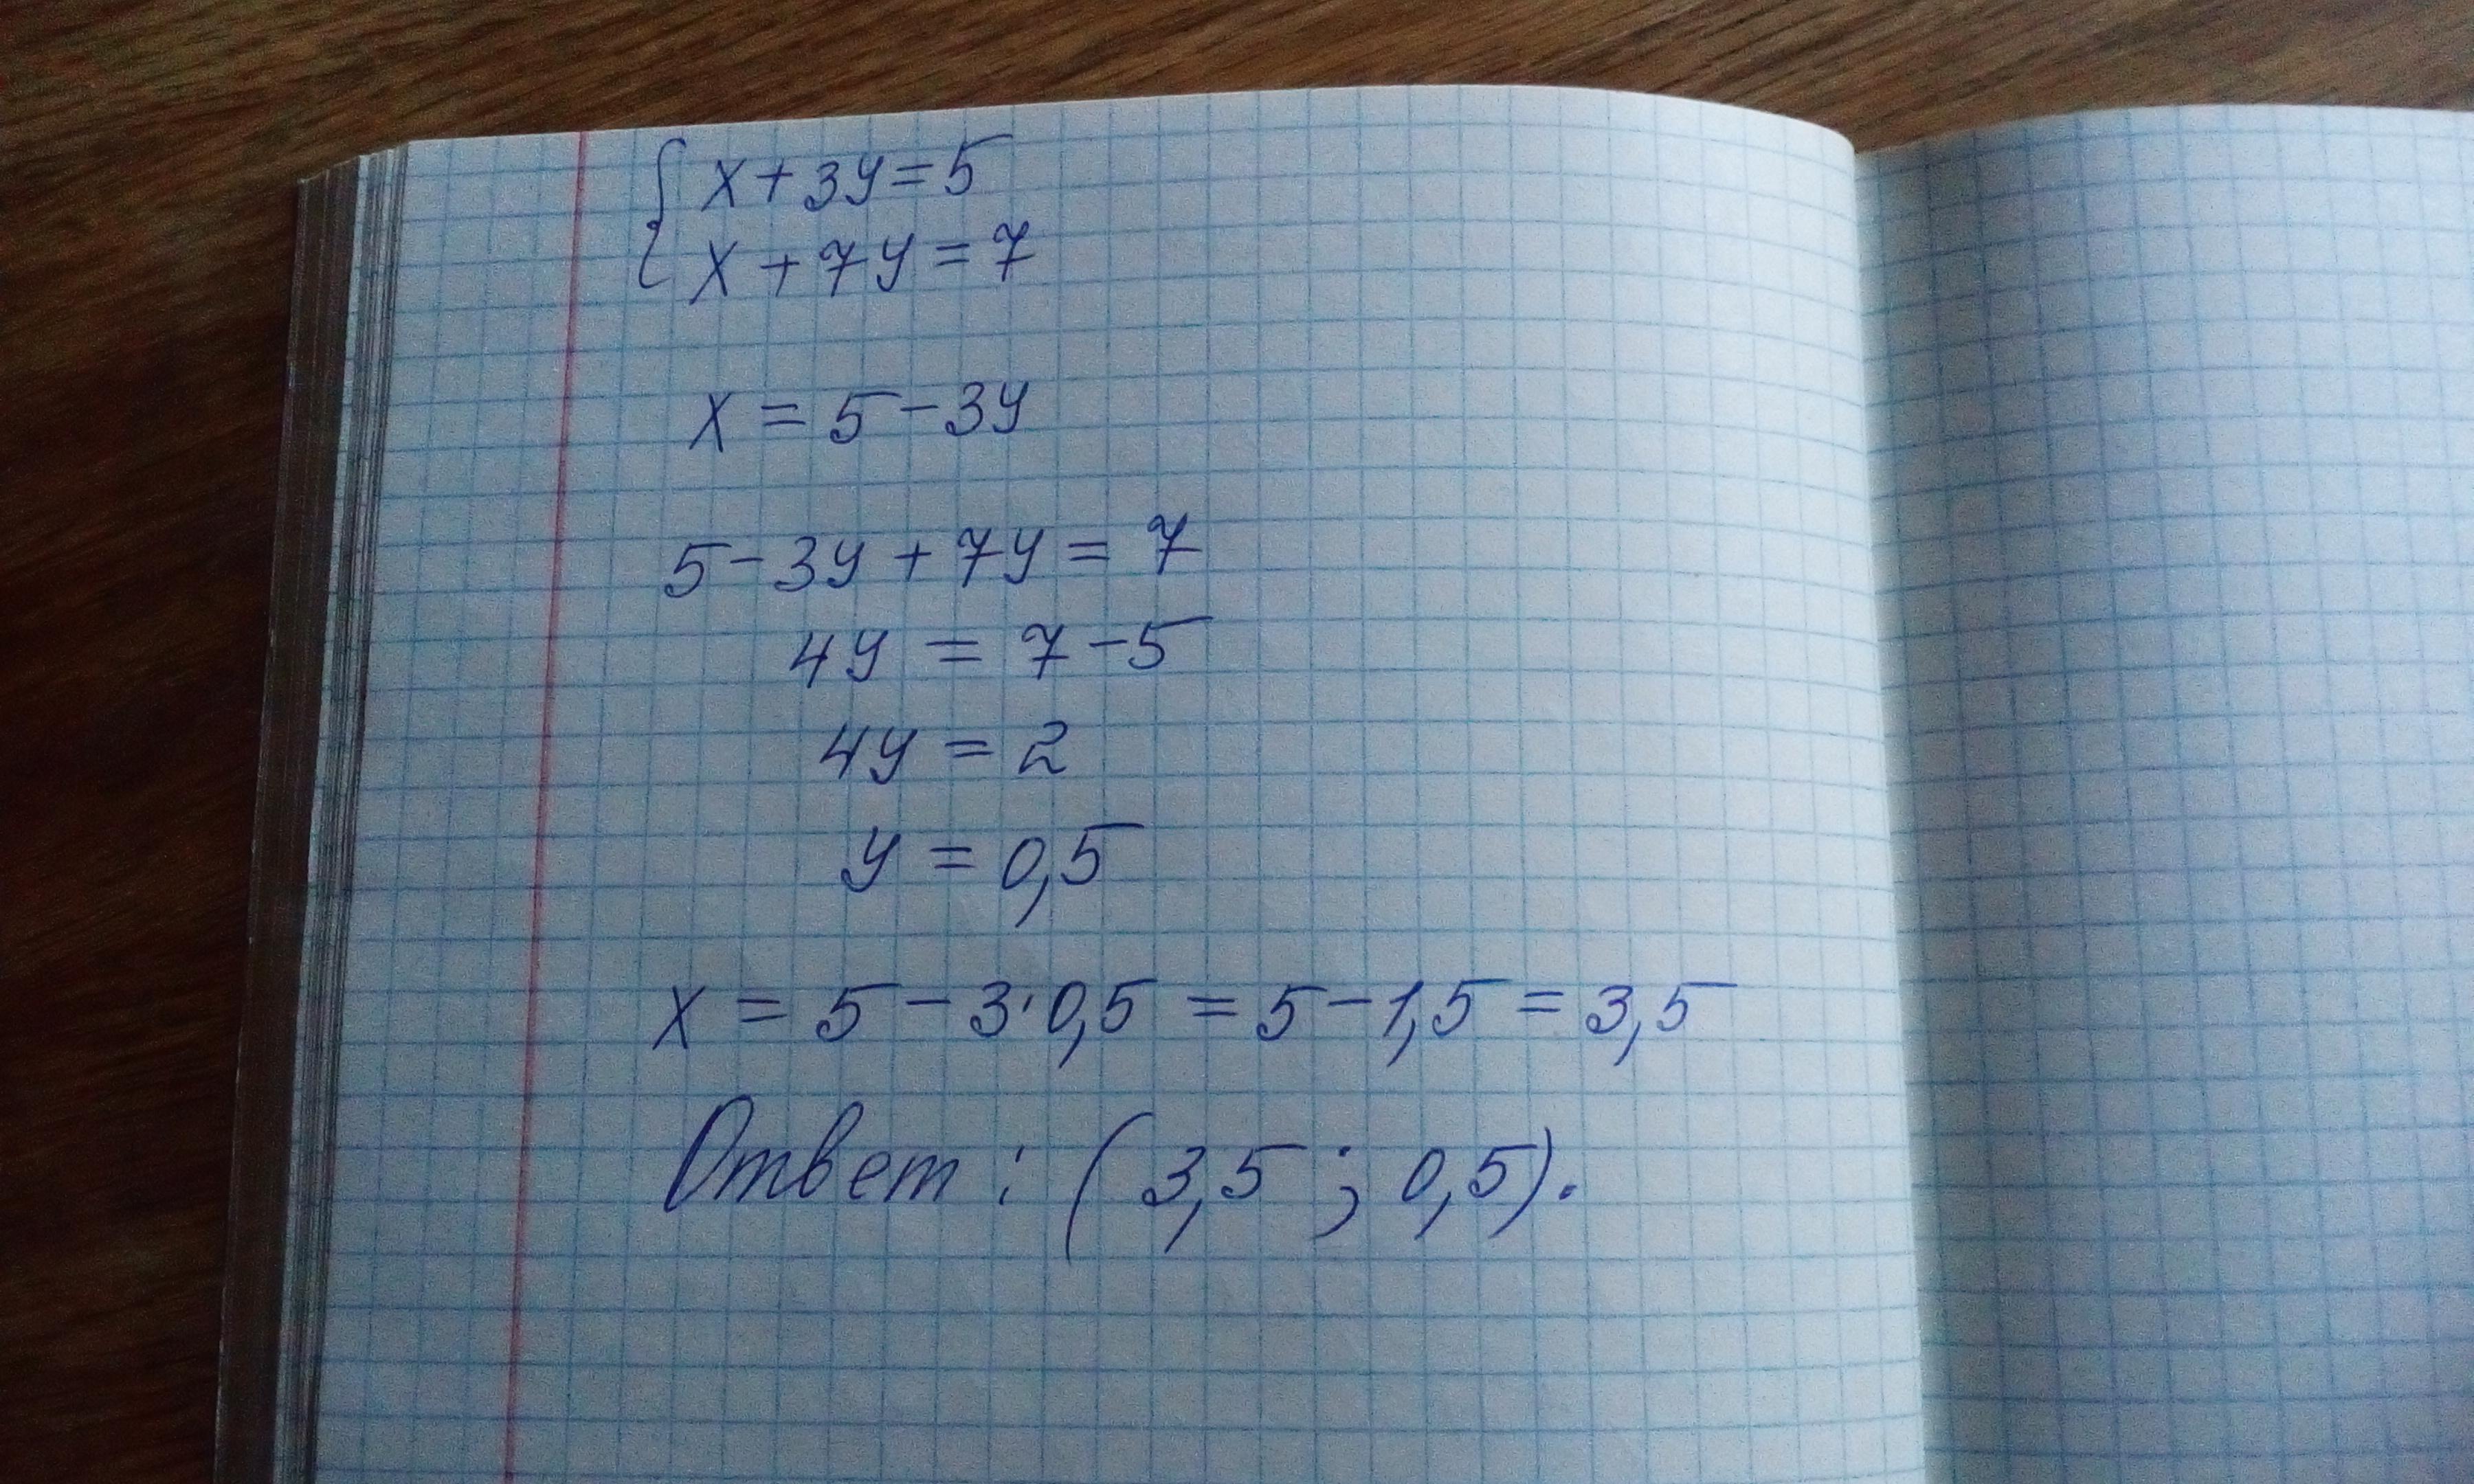 { x + 3y = 5
x + 7y = 7
x = 5 - 3y
5 - 3y + 7y = 7
4y = 7 - 5
4y = 2
y = 0,5
x = 5 - 3·0,5 = 5 - 1,5 = 3,5
Ответ: (3,5 ; 0,5).